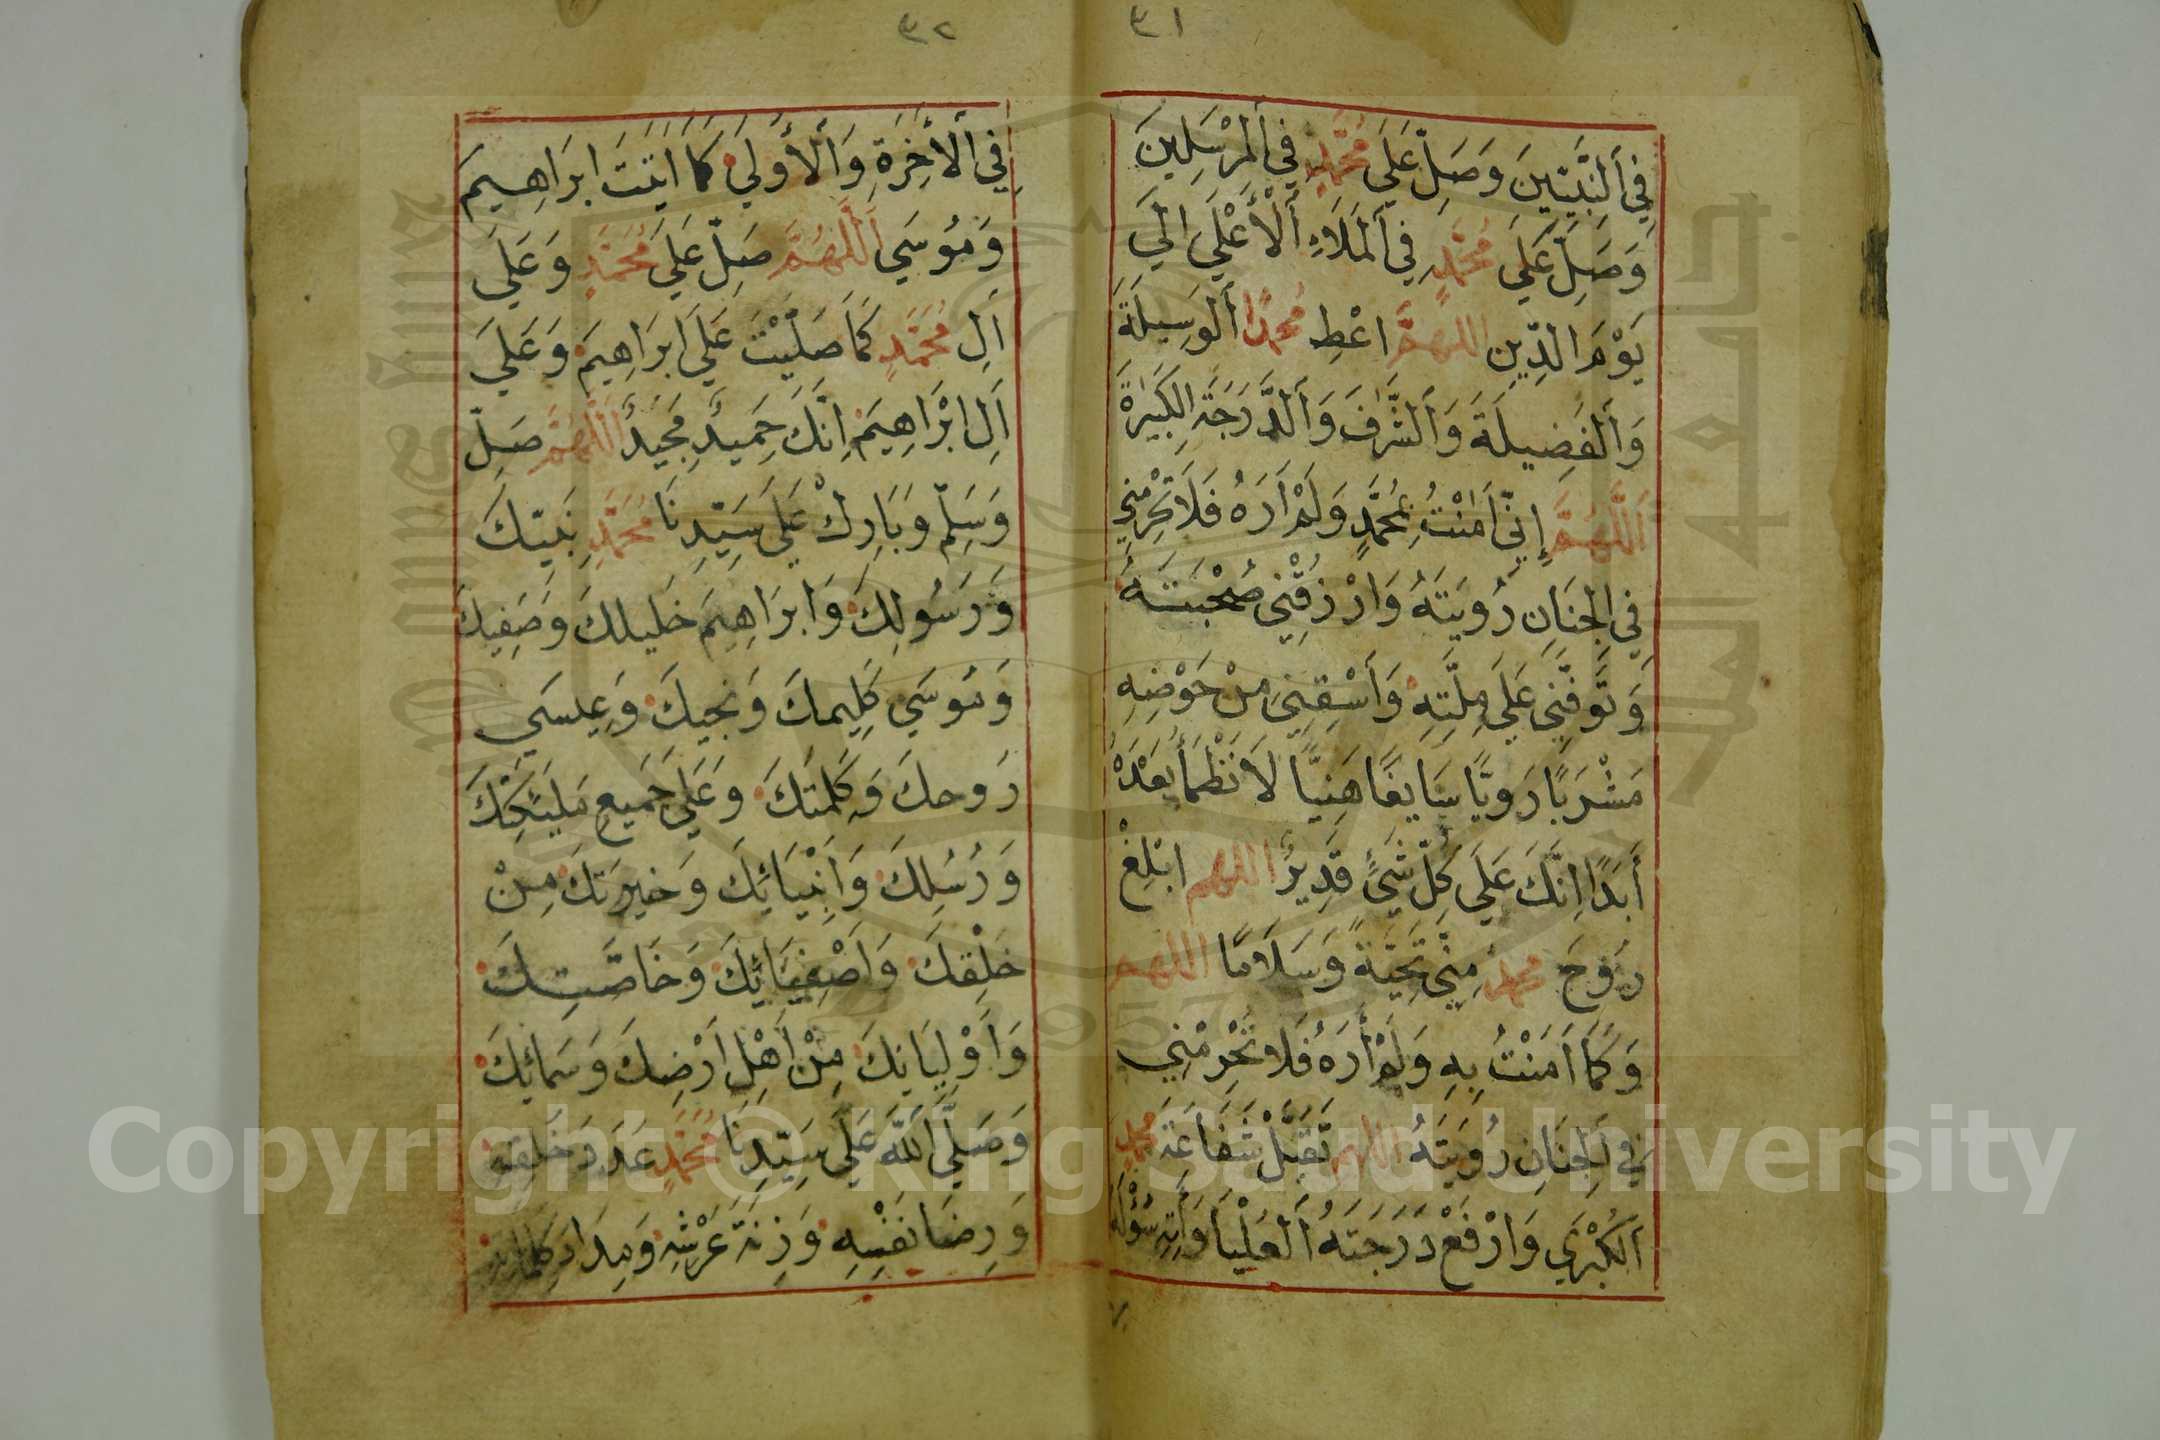 ٣١
فِي اَلنَّبِيّٖينَ وَصَلِّ عَلَي مُحَمَّدٍ فِي اَلمُرْسَلِينَ
وَصَلِّ عَلَي مُحَمَّدٍ فِي اَلمَلَاءِ اَلْأَعْلَي الَي
يَوْمَ الدِّينِ اللهُمَّ اعْطِ مُحَمَّدًا اَلوَسِيلَةَ
وَاَلفَضِيلَةَ وَاَلشَّرَفَ وَاَلدَّرَجَةِ الكَبِيَرةَ
اَللّٰهُمَّ إِنِّي اَمَنْتُ بِمُحَمَّدٍ وَلَمْ اَرَهُ فَلَا تَحْرِمْنِي
فِي الجِنَانِ رُويَتَهُ وَارْزُقْنِي صُحْبَتَهُ
وَتَوَفَّنِي عَلَي مِلَّتِهِ وَاَسْقِنِي مِنْ حَوْضِهِ
مَشْرَبًا رَوِيًّا سَايغًا هَنِيًّا لَا نَظْمَأُ بَعْدَهُ
أَبَدًا اِنَّكَ عَلَي كُلِّ شَيْءٍ قَدِيرٌ اللهم ابْلِغْ
رُوحَ محمدٍ مِنِّي تَحِيَّةً وَسَلَامًا اللهم
وَكَمَا اَمَنْتُ بِهِ وَلَمْ أَرَهُ فَلَا تَحْرِمْنِي
فِي اَلجِنَانِ رُويَتَهُ اللهم تَقَبَّلْ شَفَاعَةَ محمدٍ
اَلكُبْرَي وَارْفَعْ دَرَجَتَهُ اَلعُلْيَا وَأَتِهِ سُؤْلَهُ
٣٢
فِي اَلأَخِرَةِ وَاَلأُولَي كَمَا اتَيْتَ ابرَاهِيمَ
وَمُوسَي اَللّٰهُمَّ صَلِّ عَلَي مُحَمَّدٍ وَعَلَي
اَلِ مُحَمَّدٍ كَمَا صَلَّيْتَ عَلَي اَبرَاهِيمَ وَعَلَي
اَلِ ابْرَاهِيمَ اِنَّكَ حَمِيدٌ مَجِيدٌ اَللّٰهُمَّ صَلِّ
وَسَلِّمْ وَبَارِكْ عَلَي سَيِّدِنَا مُحَمَّدٍ نَبيّكَ
وَرَسُولِكَ وَابرَاهِيمَ خَلِيلكَ وَصَفِيكَ
وَمُوسَي كَلِيمكَ وَنَجِيكَ وَعِيسَي
رَوحكَ وَكَلِمَتكَ وَعَلَي جَمِيعِ مَليَئكَتِكَ
وَرُسُلِكَ وَاَنْبِيَائكَ وَخيرَتكَ مِنْ
خَلْقِكَ وَاَصْفِيَائِكَ وَخَاصَّتِكَ
وَاَوْلِيَائكَ مِنْ اَهْلِ اَرْضِكَ وَسَمَائكَ
وَصَلَّي اَللّٰهُ عَلَي سَيِّدِنَا مُحَمَّدٍ عَدَدَ خَلقِهِ
وَرِضَا نَفْسِهِ وَزِنَةَ عَرْشِهِ وَمِدَادَ كلِمَاتِهِ
Copyright © King Saud University
1957